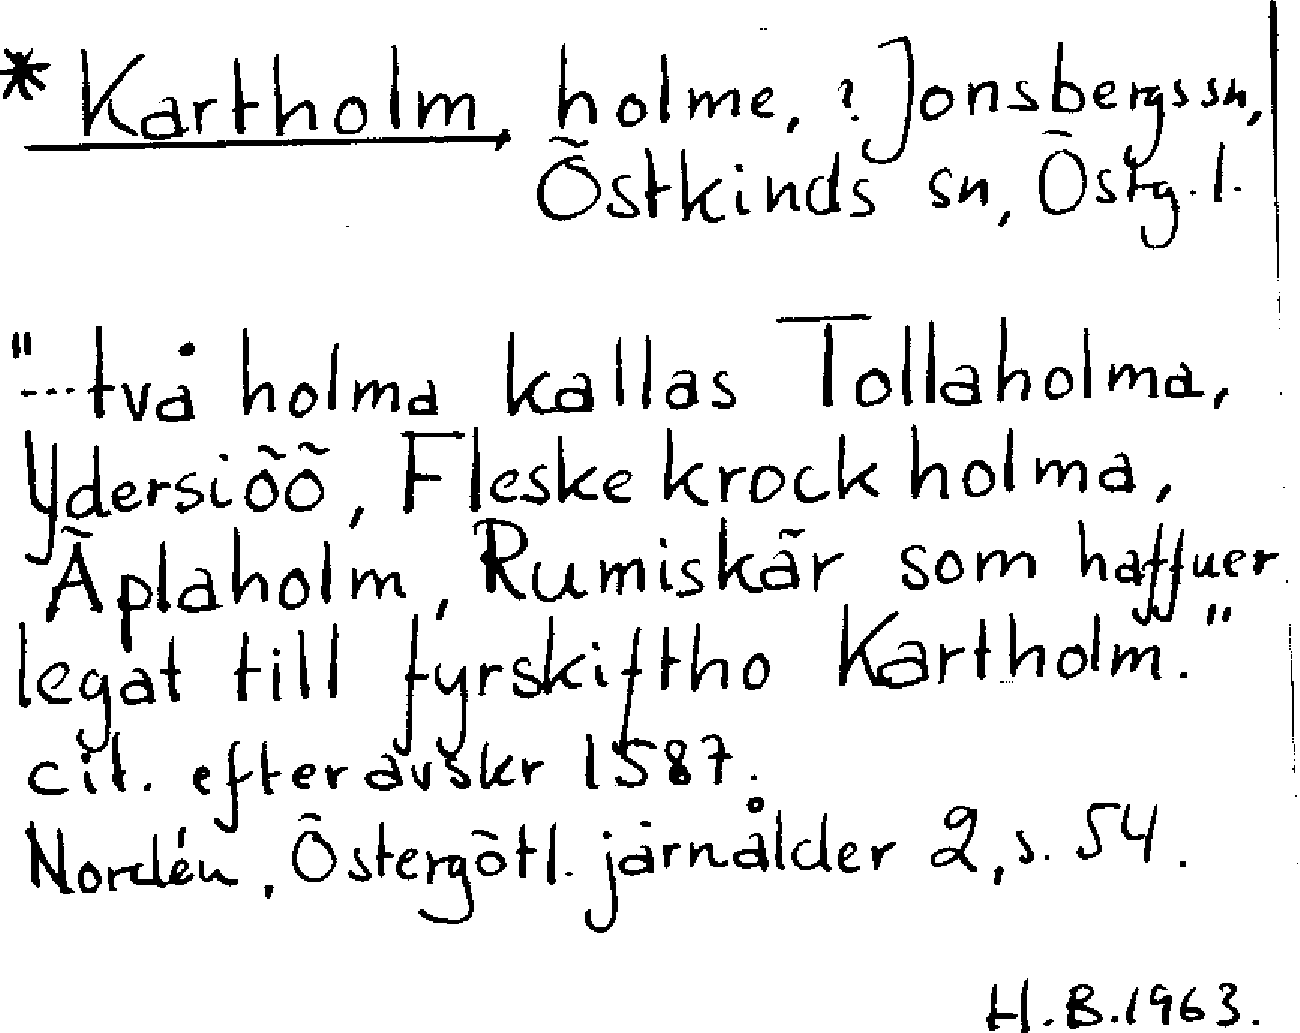 * Kartholm, holme, ? Jonsbergs sn,
Östkinds sn, Östg. l.
"...två holma kallas Tollaholma,
Ydersiöö, Fleskekrockholma,
Äplaholm, Rumiskär som haffuer
legat till fyrskiftho Kartholm."
cit. efter avskr 1587.
Nordén, Östergötl. järnålder 2, s. 54.
H.B. 1963.